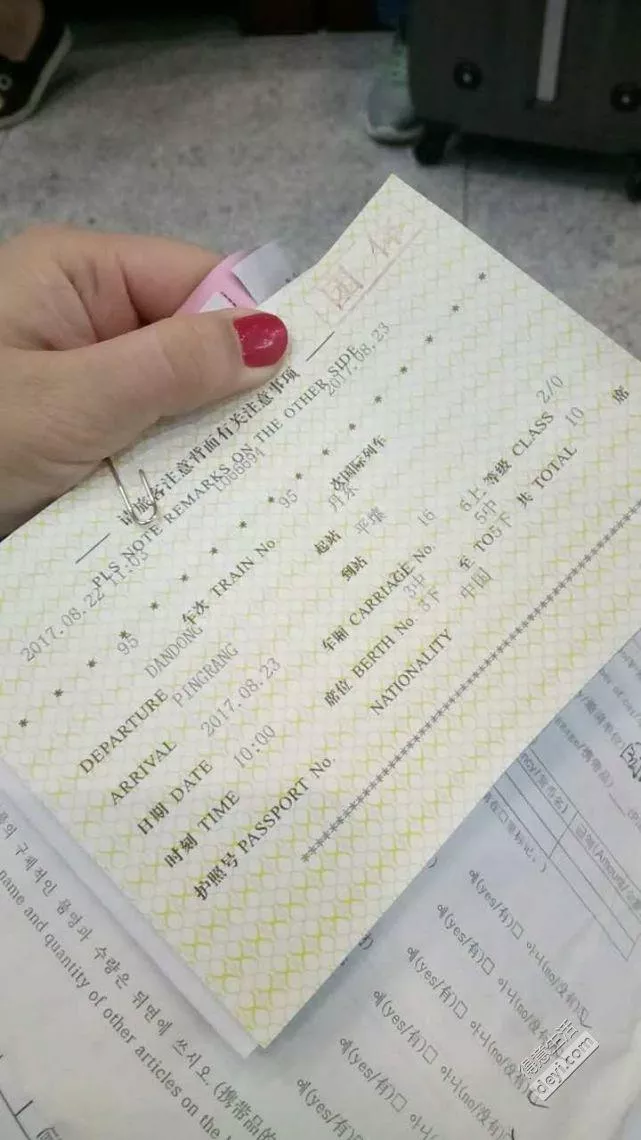 团
请旅客注意背面有关注意事项
PLS NOTE REMARKS ON THE OTHER SIDE
2017.08.22 11:03
2017.08.23
* * * * * * * * * * * * *
95 车次 TRAIN No. 95 次国际列车
DEPARTURE DANDONG 起站 丹东
ARRIVAL PINGRANG 到站 平壤
日期 DATE 2017.08.23 车厢 CARRIAGE No. 16 等级 CLASS 2/0
时刻 TIME 10:00 席位 BERTH No. 3中 3下 至 TO 5下 5中 6上 共 TOTAL 10 席
护照号 PASSPORT No. NATIONALITY 中国
구체적인 품명과 수량은 뒤면에 쓰시오. (携带品的
name and quantity of other articles on the
예(yes/有)□ 아니(no/没有)
예(yes/有)□ 아니(no/没有)
예(yes/有)□ 아니(no/没有)
예(yes/有)□ 아니(no/没有)
예(yes/有)□ 아니(no/没有)
得意生活
deyi.com